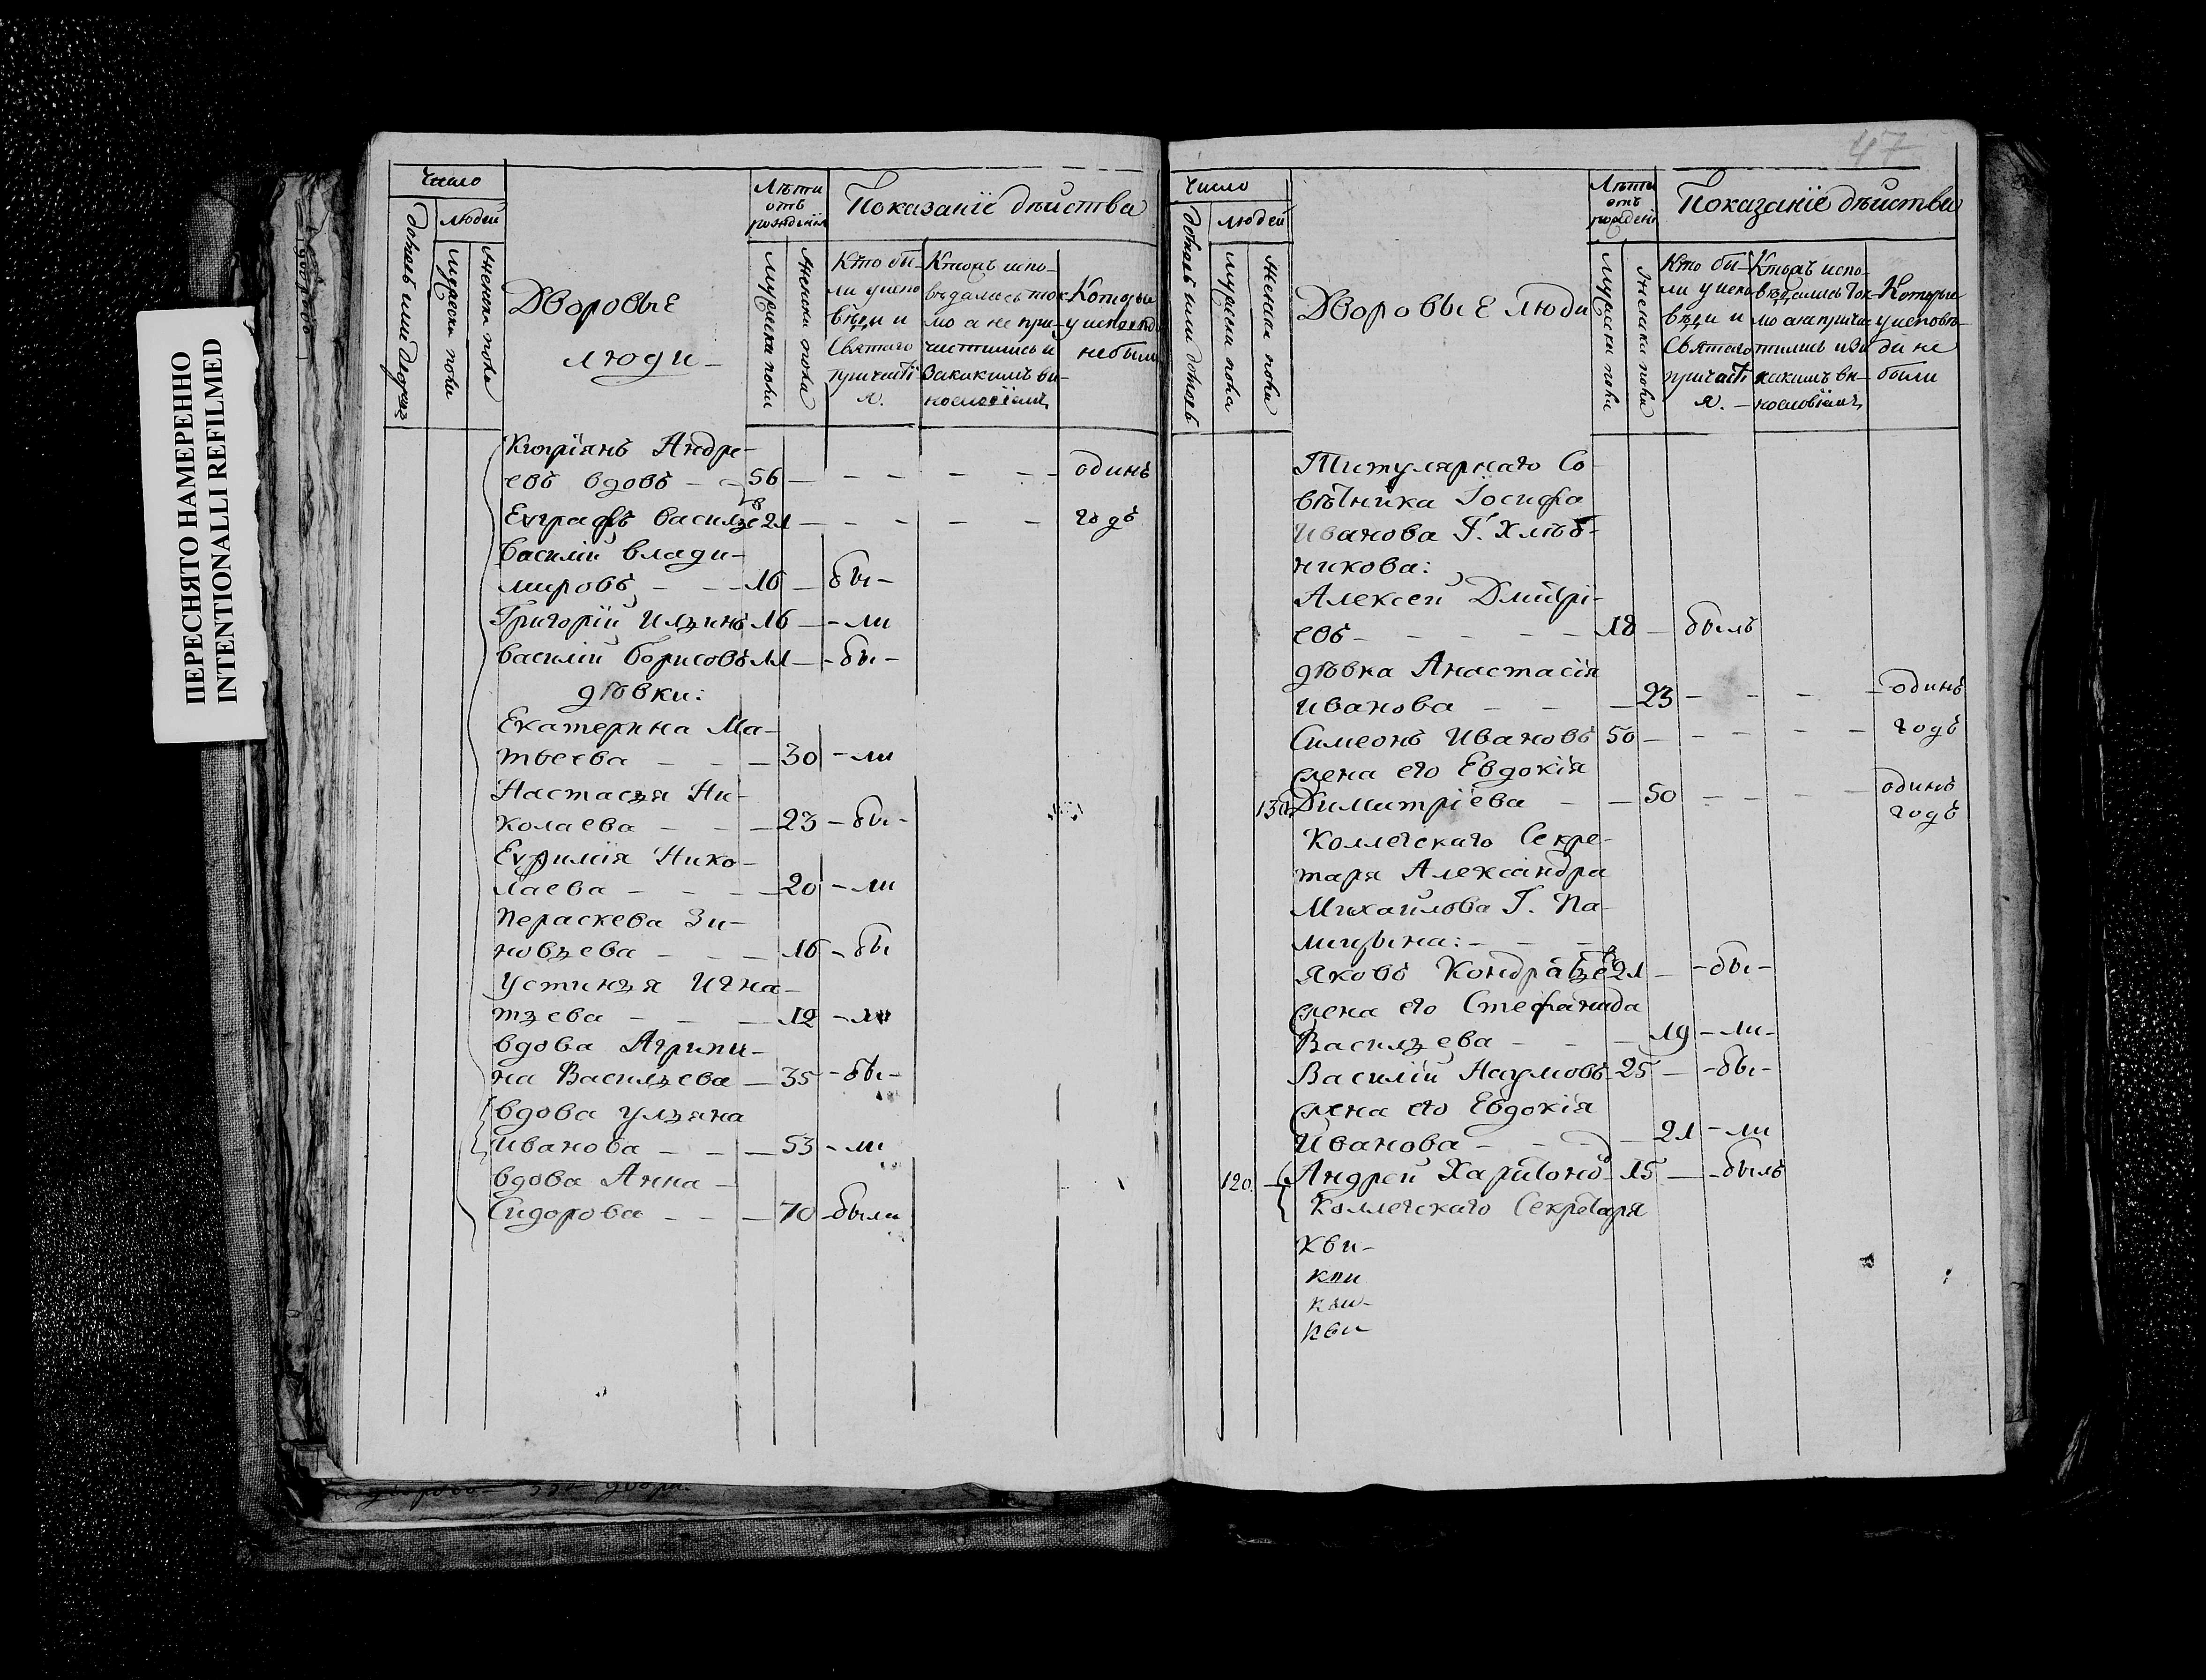 ПЕРЕСНЯТО НАМЕРЕННО
INTENTIONALLI REFILMED
Число
людей
мужеска пола
женска пола
Дворовые
люди
Лѣта
отъ
рожденія
мужеска пола
женска пола
Показаніе дѣйства
Кто бы-
ли у испо
вѣди и
Святаго
причасті
я.
Кто исповѣдались ток
мо а не при-
чистились и
за какимъ ви-
нословіемъ
Которые
у исповѣд
небыли
Кипріянъ Андре-
евъ вдовъ 56 одинъ
Еѵграфъ Васильевъ 21 годъ
Василій Влади-
мировъ 16 бы-
Григорій Ильинъ 16 - ли
Василій Борисовъ 11 - бы -
дѣвки:
Екатерина Ма-
твеева 30 - ли
Настасья Ни-
колаева 23 - бы -
Еѵфимія Нико-
лаева 20 - ли
Пераскева Зи-
новьева 16 - бы
Устинья Игна-
тьева 12 - ли
вдова Агрипи-
на Васильева 35 - бы -
вдова Ульяна
Иванова 53 - ли
вдова Анна
Сидорова 70 - была
47
Число
людей
мужеска пола
женска пола
Дворовые люди
Лѣта
отъ
рожденія
мужеска пола
женска пола
Показаніе дѣйства
Кто бы-
ли у испо
вѣди и
Святаго
причасті
я. -
Которые
у исповѣ-
ди не
были
Титулярнаго Со-
вѣтника Іосифа
Иванова Г. Хлѣб-
никова:
Алексей Дмитрі-
евъ 18 былъ
дѣвка Анастасія
Иванова 23 одинъ
Симеонъ Ивановъ 50 годъ
жена его Евдокія
130 Димитріева 50 одинъ
годъ
Коллегскаго Секре-
таря Александра
Михайлова Г. Па-
лицына:
Яковъ Кондратьевъ 21 - бы -
жена его Стефанида
Васильева 19 - ли -
Василій Наумовъ 25 - бы -
жена его Евдокія
Иванова 21 - ли
120 Андрей Харитонов 15 - былъ
Коллегскаго Секретаря
кви-
кви
кви-
кви